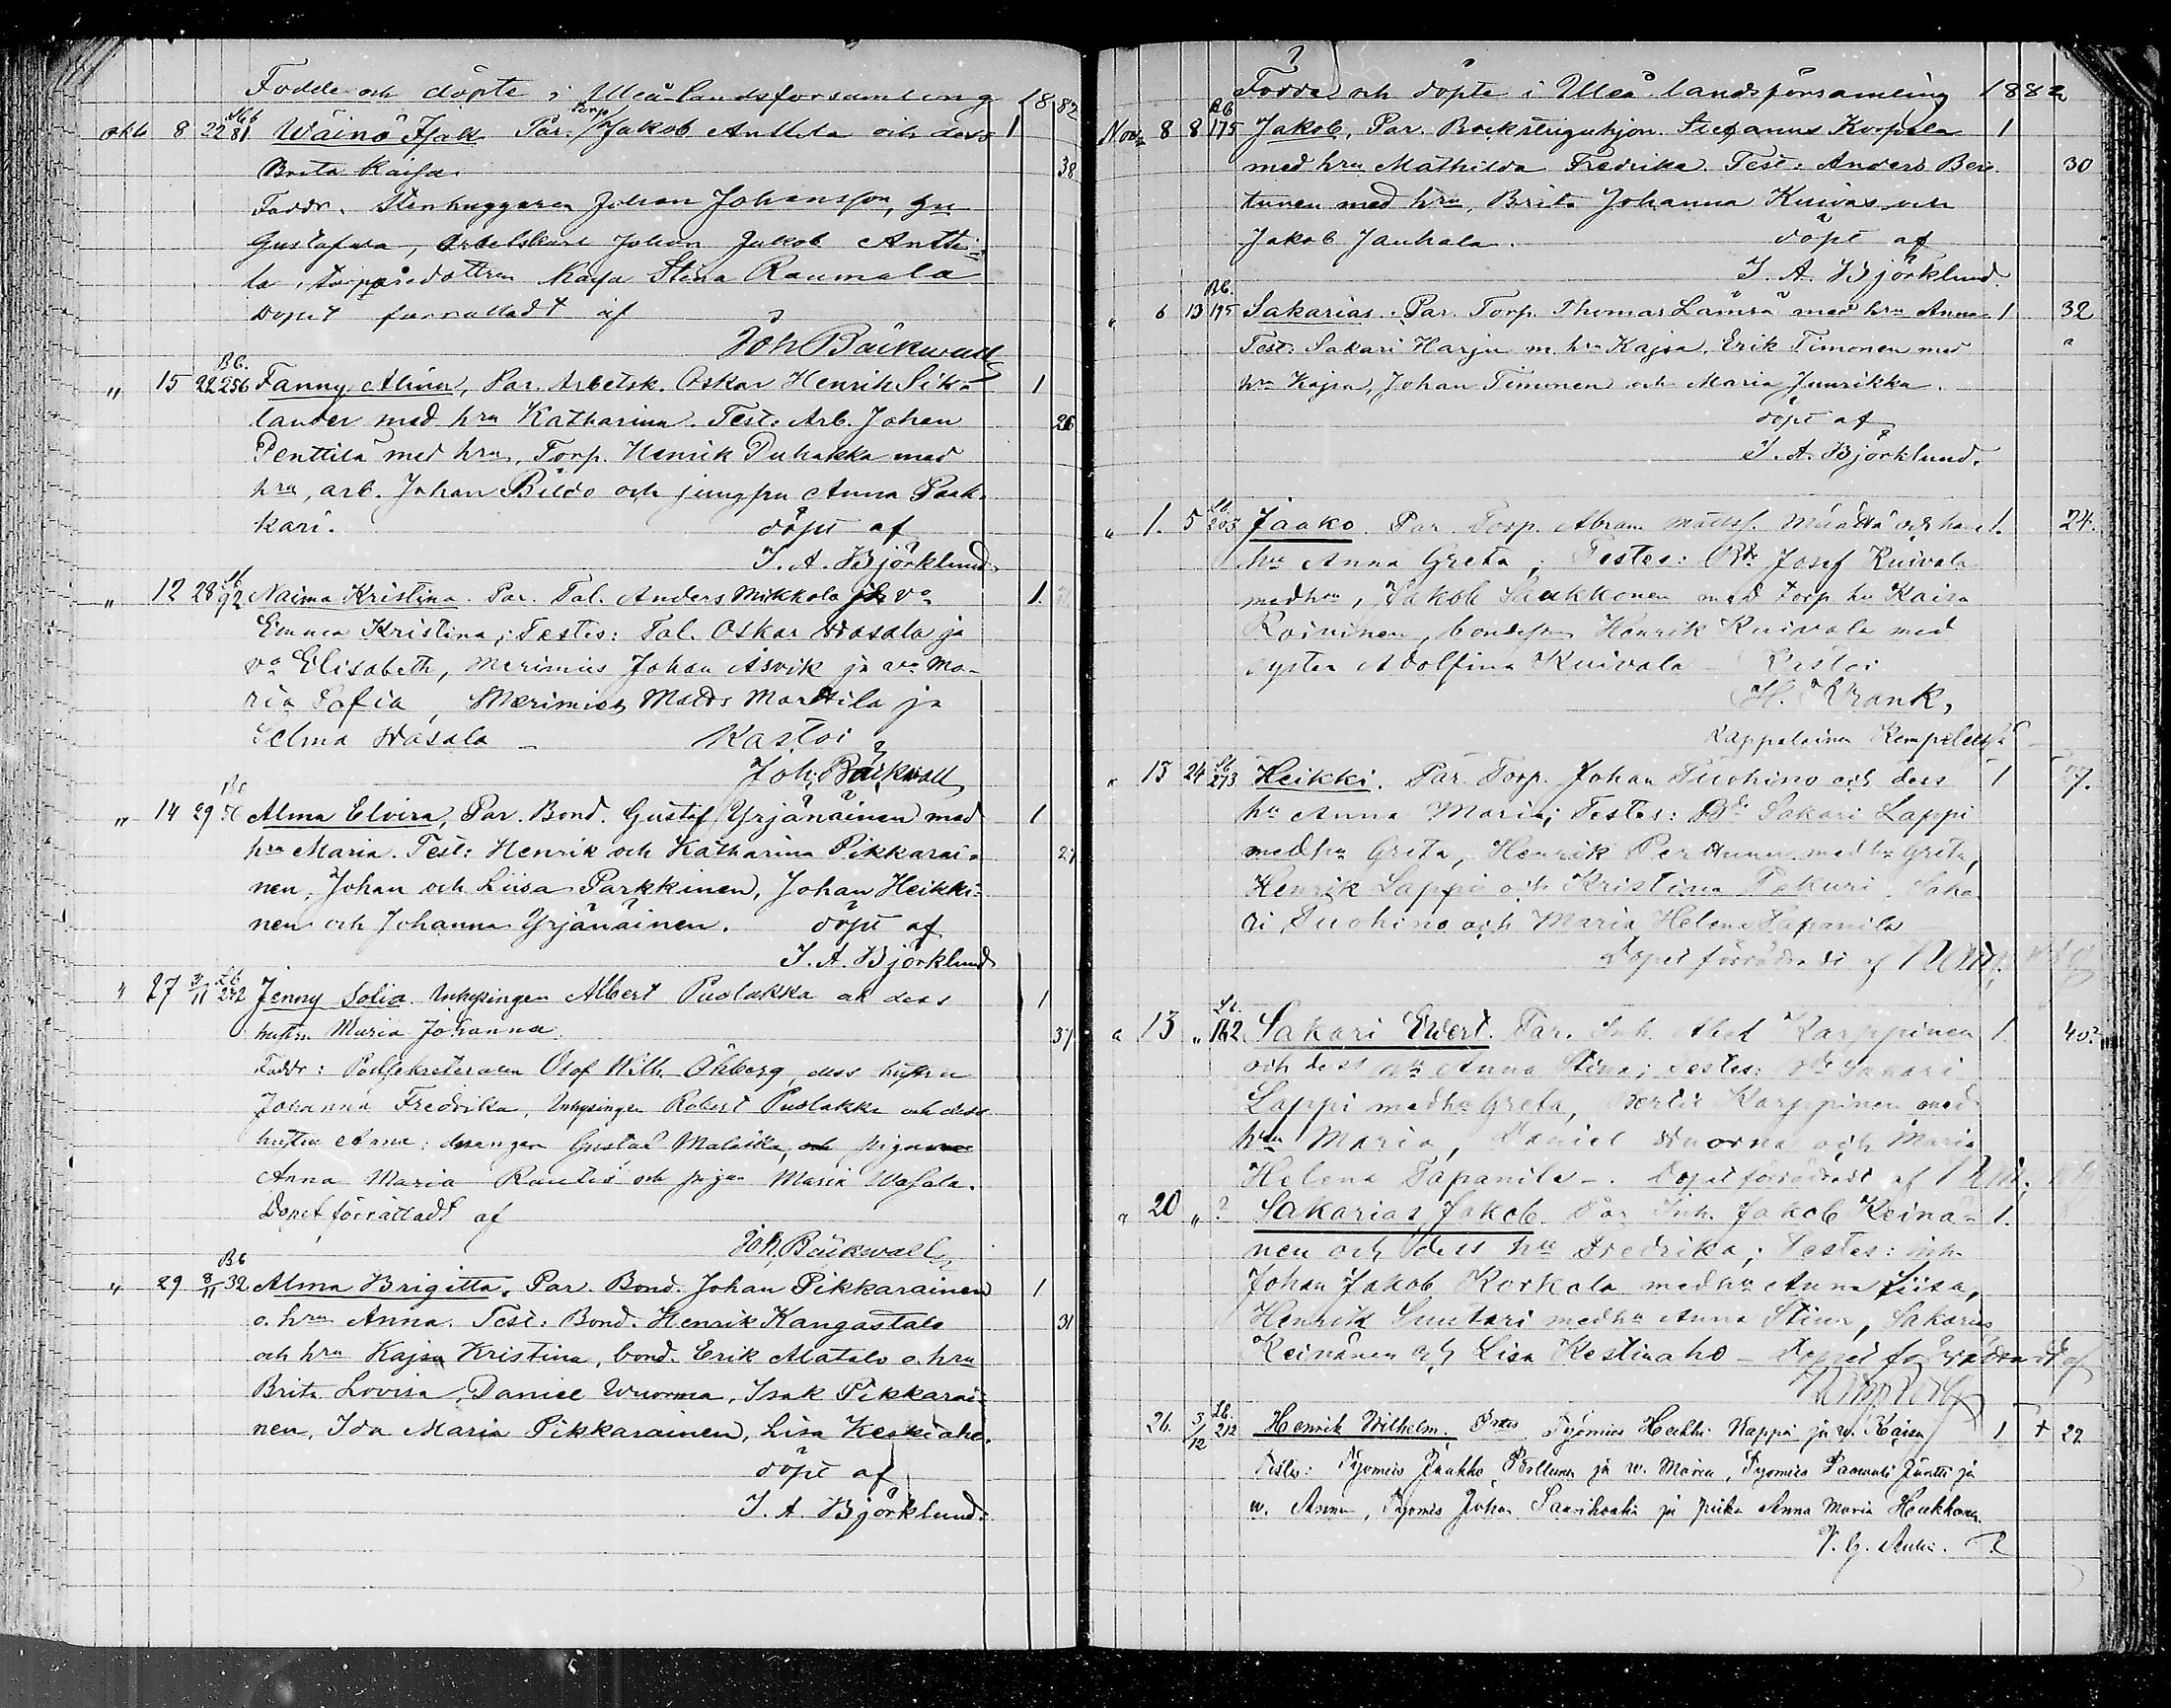 Födde och döpte i Uleå landsförsamling 1882
Nb
okt 8 22 81 Wäinö Isak Par. Torp. Jakob Anttila och dess 1
Brita Kaisa. 38
Faddr. Stenhuggaren Johan Johansson, hu
Gustafva, Arbetskarl Johan Jakob Antti-
la, torparedottren Kaisa Stina Raumala
Dopet förrättadt af
Joh Bäckwall
Bb.
" 15 22 256 Fanny Alina, Par. Arbetsk. Oskar Henrik Sih- 1
lander med hru Katharina. Test: Arb. Johan 26
Penttilä med hru, Torp. Henrik Puhakka med
hru, arb. Johan Bildo och jungfru Anna Paak-
kari. döpt af
J. A. Björklund.
" 12 28 92 Naima Kristina. Par. Tal. Anders Mikkola ja vo 1.
Emma Kristina; Testes: Tal. Oskar Wasala ja
vo Elisabeth, Merimies Johan Åsvik ja vo Ma-
ria Sofia, Merimies Matts Marttila ja
Selma Wasala – Kastoi
Joh. Bäckwall
" 14 29 Alma Elvira, Par. Bond. Gustaf Yrjänäinen med 1
hru Maria. Test: Henrik och Katharina Pikkarai- 27
nen, Johan och Liisa Parkkinen, Johan Heikki-
nen och Johanna Yrjänäinen. döpt af
J. A. Björklund
Lb
" 27 3/11 272 Jenny Sofia Inhysingen Albert Puolakka och dess 1
hustru Maria Johanna 37
Faddr: Olof Wilh. Öhberg, dess hustru
Johanna Fredrika, Inhysingen Robert Puolakka och dess
hustru Anna: drengen Gustaf och pigorna
Anna Maria Rautio och pigan Maria Wasala.
Dopet förrättadt af
Joh. Bäckwall
Bb
" 29 8/11 32 Alma Brigitta. Par. Bond. Johan Pikkarainen 1
o. hru Anna. Test: Bond. Henrik Kangastalo 31
och hru Kajsa Kristina, bond. Erik Alatalo o. hru
Brita Lovisa, Daniel Wuorma, Isak Pikkarai-
nen, Ida Maria Pikkarainen, Lisa Keskiaho.
döpt af
J. A. Björklund.
Födde och döpte i Uleå landsförsamling 1882
Bb
Nov. 8 8 175 Jakob, Par. Backstuguhjon. Stefanus Korpela 1
med hru Mathilda Fredrika. Test: Anders Ber- 30
tunen med hru, Brita Johanna Kuivas och
Jakob Jauhala. döpt af
J. A. Björklund.
Bb.
" 6 13 195 Sakarias. Par. Torp. Thomas Lämsä med hru Anna 1 32
Test: Sakari Harju m. hru Kajsa, Erik Timonen med
hru Kajsa, Johan Timonen och Maria Juurikka.
döpt af
J. A. Björklund.
Lb.
" 1. 5 203 Jaako. Par. Torp. Abram Mattss. Määttä och hans 1. 24.
hu Anna Greta; Testes: Bd Josef Kuivala
med hru, Jakob Saukkonen med Torp hu Kaisa
Roininen, bondeson Henrik Kuivala med
syster Adolfina Kuivala – Kastoi
H. Krank,
Kappalainen Kempeleessä
Lb
" 15 24 273 Heikki. Par. Torp. Johan Tuohino och dess 1
hu Anna Maria; Testes: Bd Sakari Lappi
med hu Greta, Henrik Perttunen med hu Greta,
Henrik Lappi och Kristina Pakuri, Saka-
ri Tuohino och Maria Helena Tapanila
Dopet förrättadt af
Lb.
" 13 " 162 Sakari Evert. Par. Inh. Abel Karppinen 1. 40.
och dess hu Anna Stina; Testes: Bd Sakari
Lappi med hu Greta, Bertil Karppinen med
hru Maria, Daniel Wuorma och Maria
Helena Tapanila –. Dopet förrättadt af
" 20 " ? Sakarias Jakob. Par. Inh. Jakob Keinä- 1.
nen och dess hu Fredrika; Testes: Inh.
Johan Jakob Korkala med hu Anna Liisa,
Henrik Suutari med hu Anna Stina, Sakarias
Keinänen och Lisa Kestinaho – Dopet förrättadt af
Lb.
26. 3/12 212 Henrik Wilhelm. Työmies Heikki Kappi ja w. Kaisa 1 + 22
Testes: Työmies Jaakko Pelttunen ja w. Maria, Työmies Paavali Juntti ja
w. Anna, Työmies Johan Saarikoski ja piika Anna Maria Heikkonen.